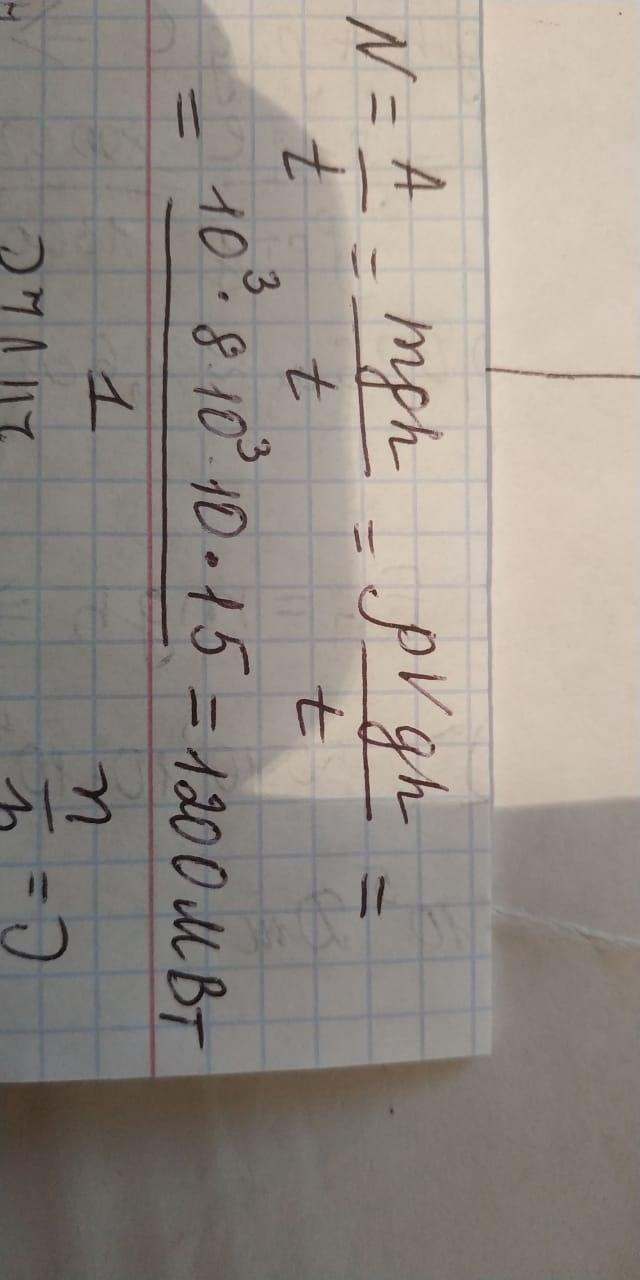 N = A/t = mgh/t = ρVgh/t =
= 10³·8·10³·10·15/1 = 1200 МВт